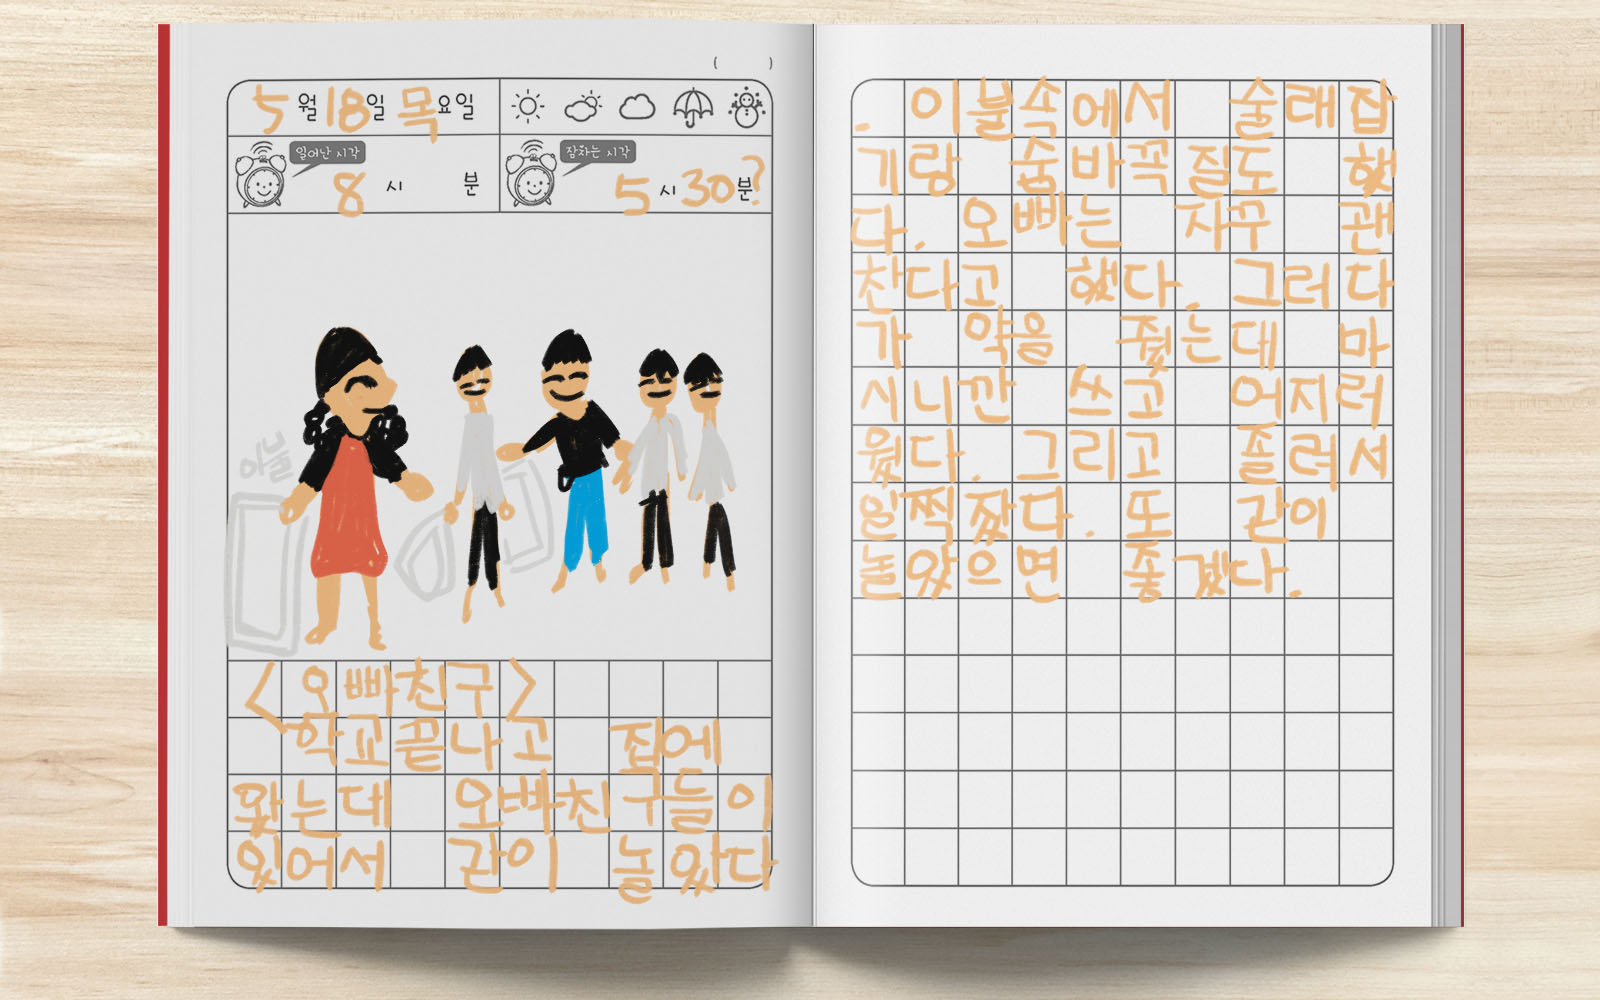 ( )
5월 18일 목요일
일어난 시각
8시 분
잠자는 시각
5시 30분?
이불
<오빠친구>
학교끝나고 집에
왔는데 오빠친구들이
있어서 같이 놀았다
. 이불속에서 술래잡
기랑 숨바꼭질도 했
다. 오빠는 자꾸 괜
찬다고 했다. 그러다
가 약을 줬는대 마
시니깐 쓰고 어지러
웠다. 그리고 졸려서
일찍 잤다. 또 같이
놀았으면 좋겠다.